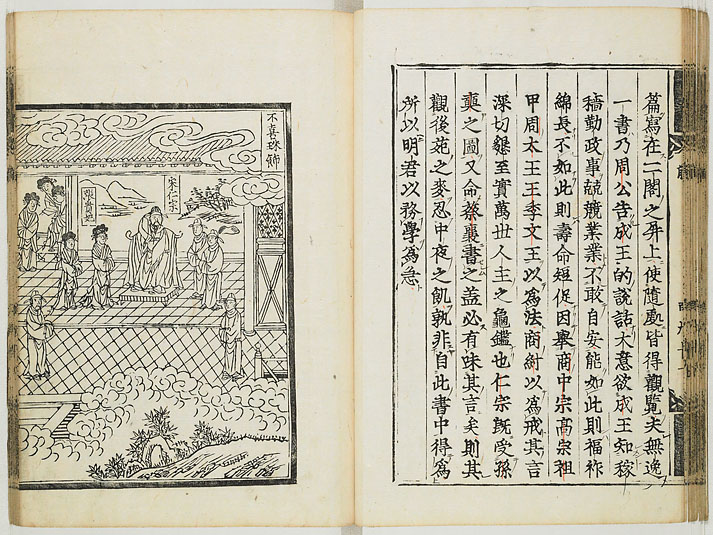 篇寫在二閣之屏上使隨處皆得觀覽夫無逸
一書乃周公告成王的說話大意欲成王知稼
穡勤政事兢兢業業不敢自安能如此則福祚
綿長不如此則壽命短促因舉商中宗高宗祖
甲周太王王季文王以爲法商紂以爲戒其言
深切懇至實萬世人主之龜鑑也仁宗旣受孫
奭之圖又命蔡襄書之蓋必有味其言矣則其
觀後苑之麥忍中夜之飢孰非自此書中得爲
所以明君以務學爲急
不喜珠飾
宋仁宗
張貴妃